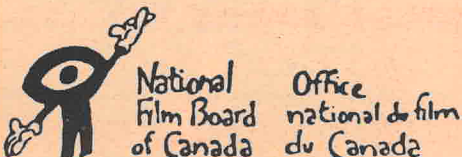 National
Film Board
of Canada
Office
national du film
du Canada